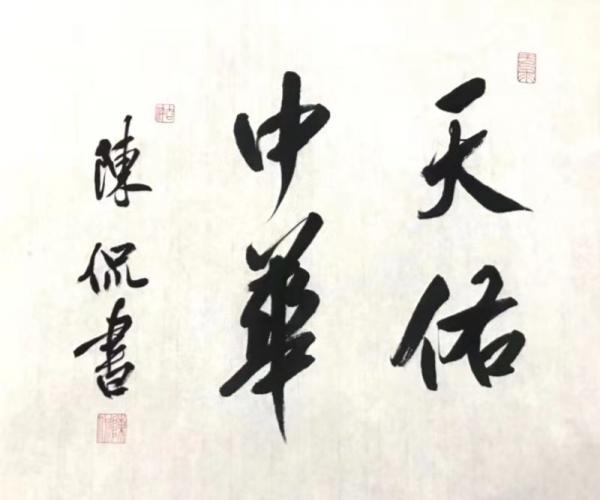 天佑
中華
陳侃書